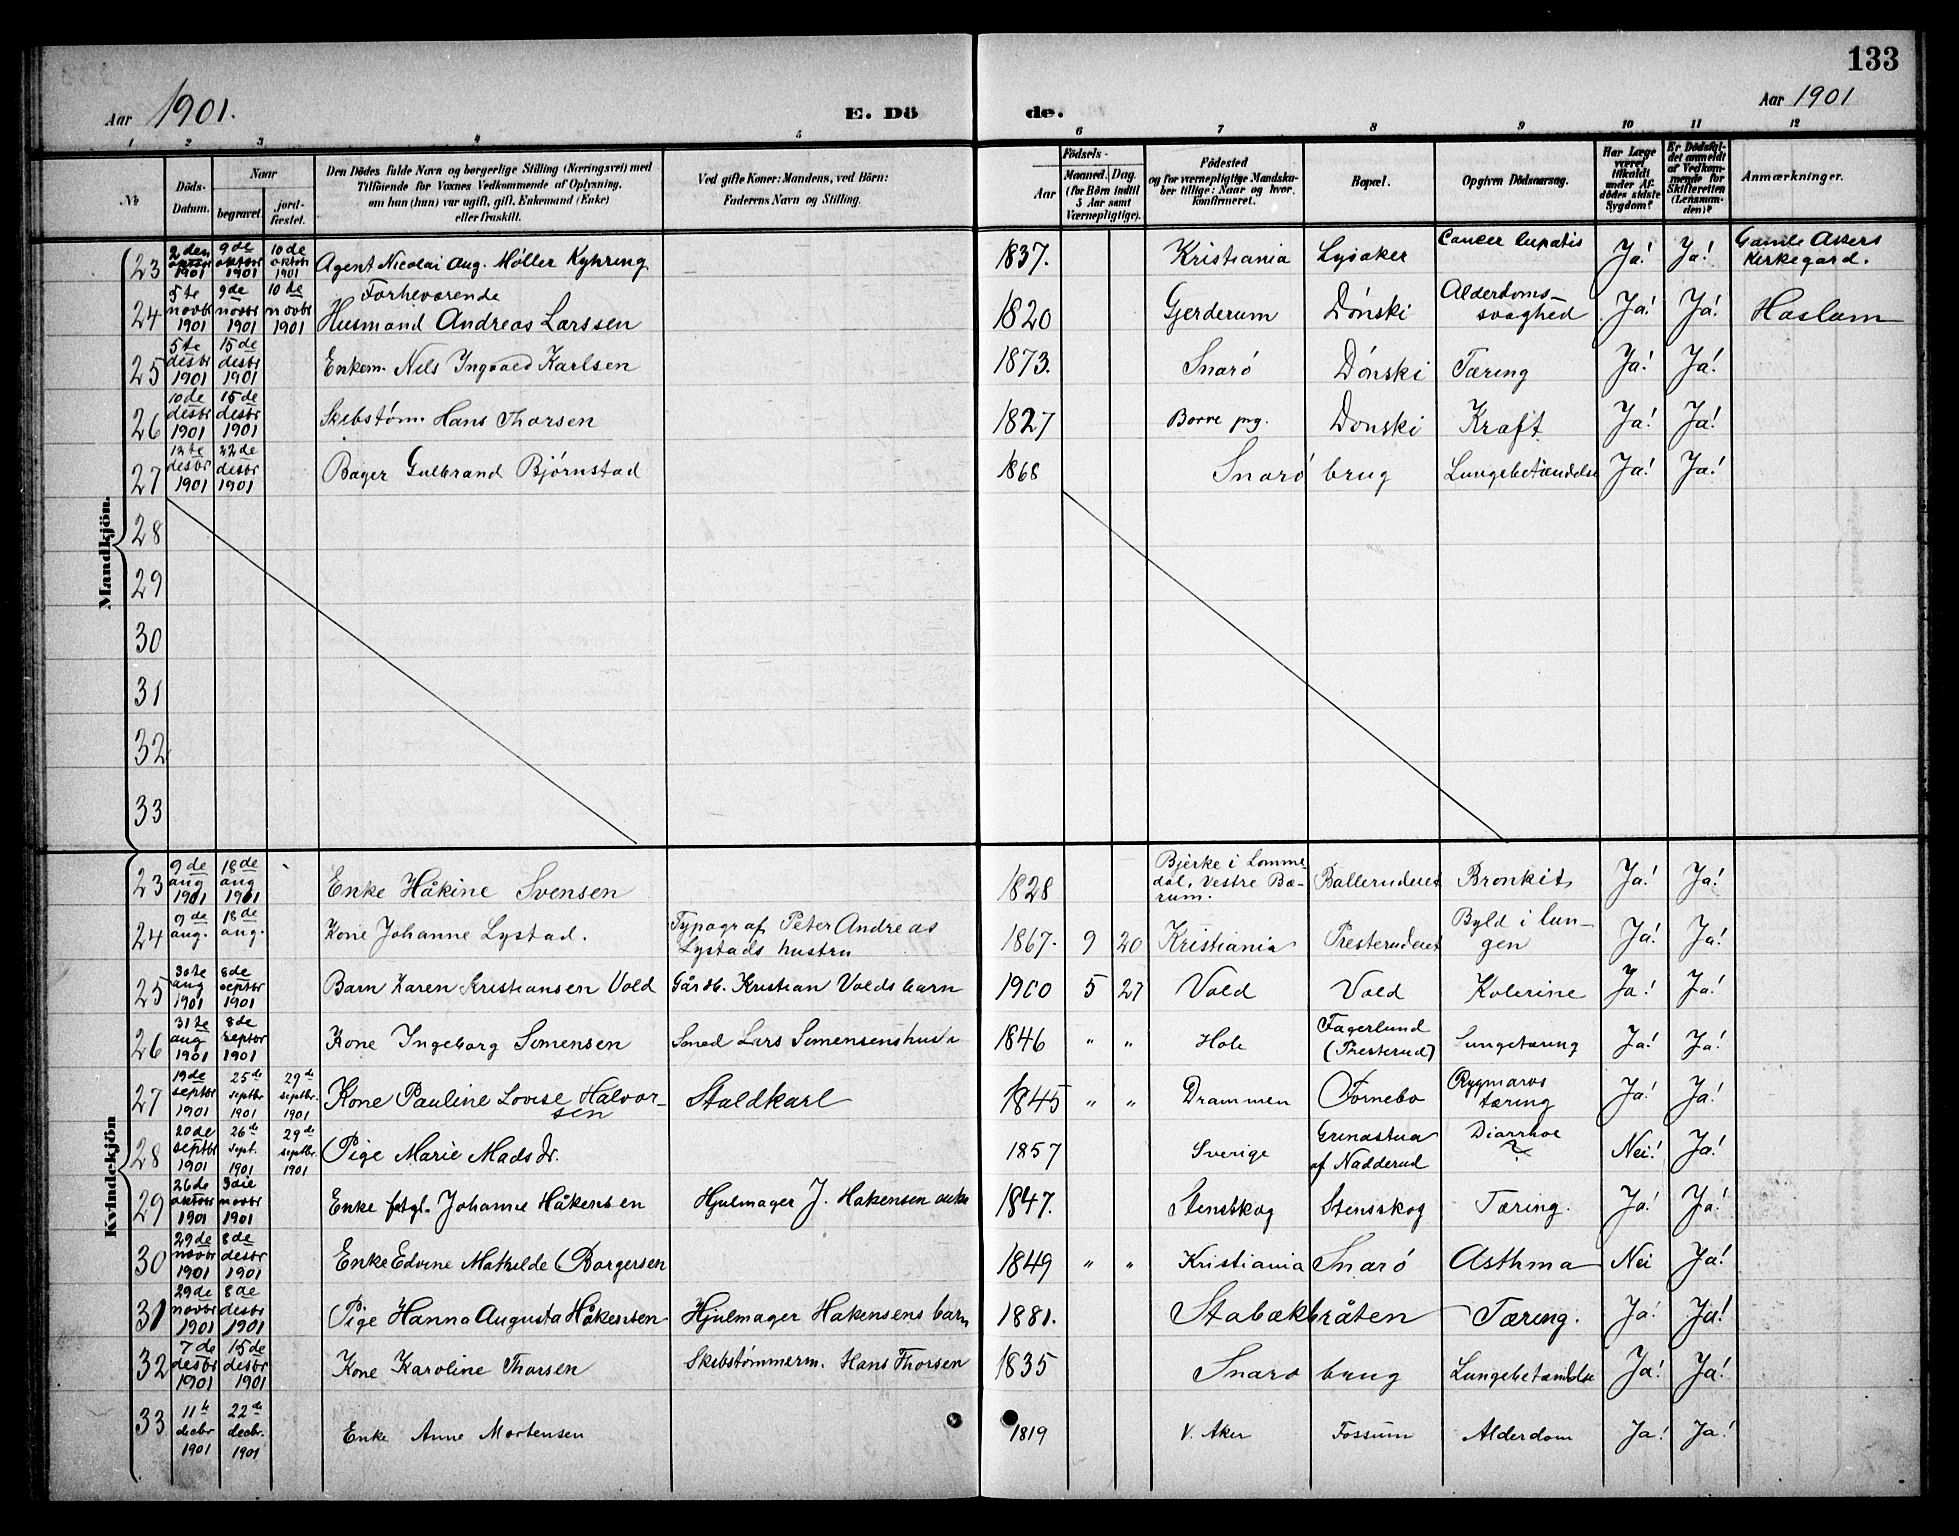 133
Aar 1901.
E. Dö
de.
Aar 1901
1 2 3 4 5 6 7 8 9 10 11 12
№
Döds-Datum.
Naar
begravet.
jord-fæstet.
Den Dödes fulde Navn og borgerlige Stilling (Næringsvei) med
Tilföiende for Voxnes Vedkommende af Oplysning,
om han (hun) var ugift, gift, Enkemand (Enke)
eller fraskilt.
Ved gifte Koner: Mandens, ved Börn:
Faderens Navn og Stilling.
Födsels-
Aar
Maaned. Dag.
(for Börn indtil
5 Aar samt
Værnepligtige).
Födested
og for værnepligtige Mandska-
ber tillige: Naar og hvor.
Konfirmeret.
Bopæl.
Opgiven Dödsaarsag.
Har Læge
været
tilkaldt
under Af-
dödes sidste
Sygdom?
Er Dödsfal-
det anmeldt
af Vedkom-
mende for
Skifteretten
(Lensman-
den)?
Anmærkninger.
Mandkjön.
23 2den oktbr 1901 9de oktbr 1901 10de oktbr 1901 Agent Nicolai Aug. Møller Kyhring 1837. Kristiania Lysaker Cancer hepatis Ja! Ja! Gamle Akers Kirkegard.
24 5te novbr 1901 9de novbr 1901 10de novbr 1901 Forheværende Husmand Andreas Larssen 1820 Gjerderum Dønski Alderdoms-svaghed Ja! Ja! Haslum
25 5te desbr 1901 15de desbr 1901 Enkem. Nils Ingvald Karlsen 1873. Snarø Dønski Tæring Ja! Ja!
26 10de desbr 1901 15de desbr 1901 Skibstøm. Hans Thorsen 1827 Borre prg. Donski Kræft Ja! Ja!
27 12te desbr 1901 22de desbr 1901 Bager Gulbrand Bjørnstad 1868 Snarø brug Lungebetændelse Ja! Ja!
28
29
30
31
32
33
Kvindekjön
23 9de aug 1901 18de aug 1901 Enke Håkine Svensen 1828 Bjerke i Lomme dal, Vestre Bæ-rum. Balleruderet Bronkit Ja! Ja!
24 9de aug. 18de aug. Kone Johanne Lystad. Typograf Peter Andreas Lystads hustru 1867. 9 20 Kristiania Presteruderet Byld i lun-gen Ja! Ja!
25 30te aug 1901 8de septbr 1901 Barn Karen Kristiansen Vold Gårdb. Kristian Volds barn 1900 5 27 Vold Vold Kolerine Ja! Ja!
26 31te aug 1901 8de septbr 1901 Kone Ingeborg Simensen Smed Lars Simensens 1846 " " Hole Fagerlund (Presterud) Lungetæring Ja! Ja!
27 19de septbr 1901 25de septbr 1901 29de septbr. 1901 Kone Pauline Lovise Halvor-sen Staldkarl 1845 " " Drammen Fornebo Rygmarvs tæring Ja! Ja!
28 20de septbr 1901 26de sept. 1901 29de septbr. 1901 Pige Marie Mads dr. 1857 Sverige Grinastua af Nadderud Diarrhoe ? Nei! Ja!
29 26de oktbr 1901 3die novbr 1901 Enke fatgl. Johanne Håkensen Hjulmager J. Hakensen enke 1847. Stensskog Stensskog Tæring. Ja! Ja!
30 29de novbr 1901 8de desbr 1901 Enke Edvine Mathilde Borgersen 1849 " " Kristiania Snarø Asthma Nei Ja!
31 29de novbr 1901 8de desbr 1901 Pige Hanna Augusta Håkensen Hjulmager Hakensens barn 1881. Stabækbråten Tæring. Ja! Ja!
32 7de desbr 1901 15de desbr 1901 Kone Karoline Thorsen Skibstømmerm. Hans Thorsen 1835 Snarø brug Lungebetændelse Ja! Ja!
33 11te decbr 1901 22de decbr. 1901 Enke Anne Mortensen 1819 V. Aker Fossum Alderdom Ja! Ja!